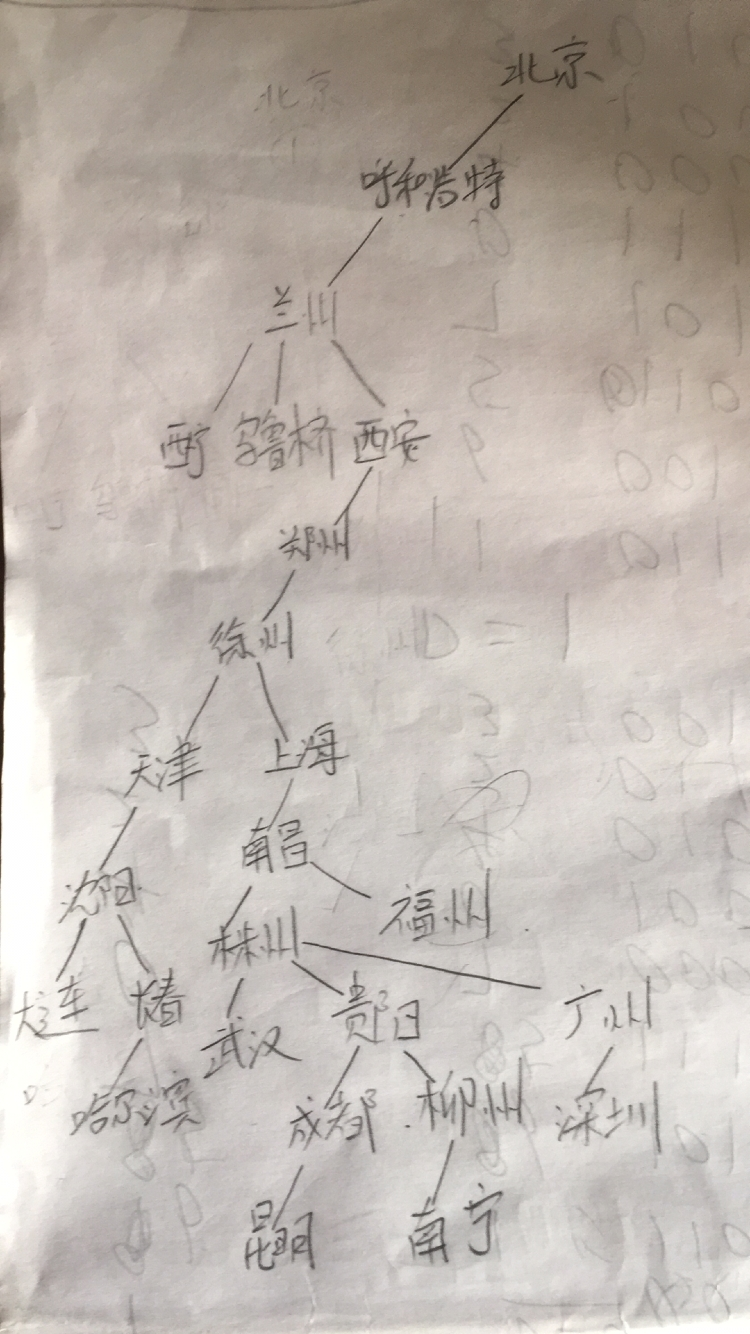 北京
呼和浩特
兰州
西宁 乌鲁木齐 西安
郑州
徐州
天津 上海
南昌
沈阳 福州
株州
大连 长春 武汉 贵阳 广州
哈尔滨 成都 柳州 深圳
昆明 南宁